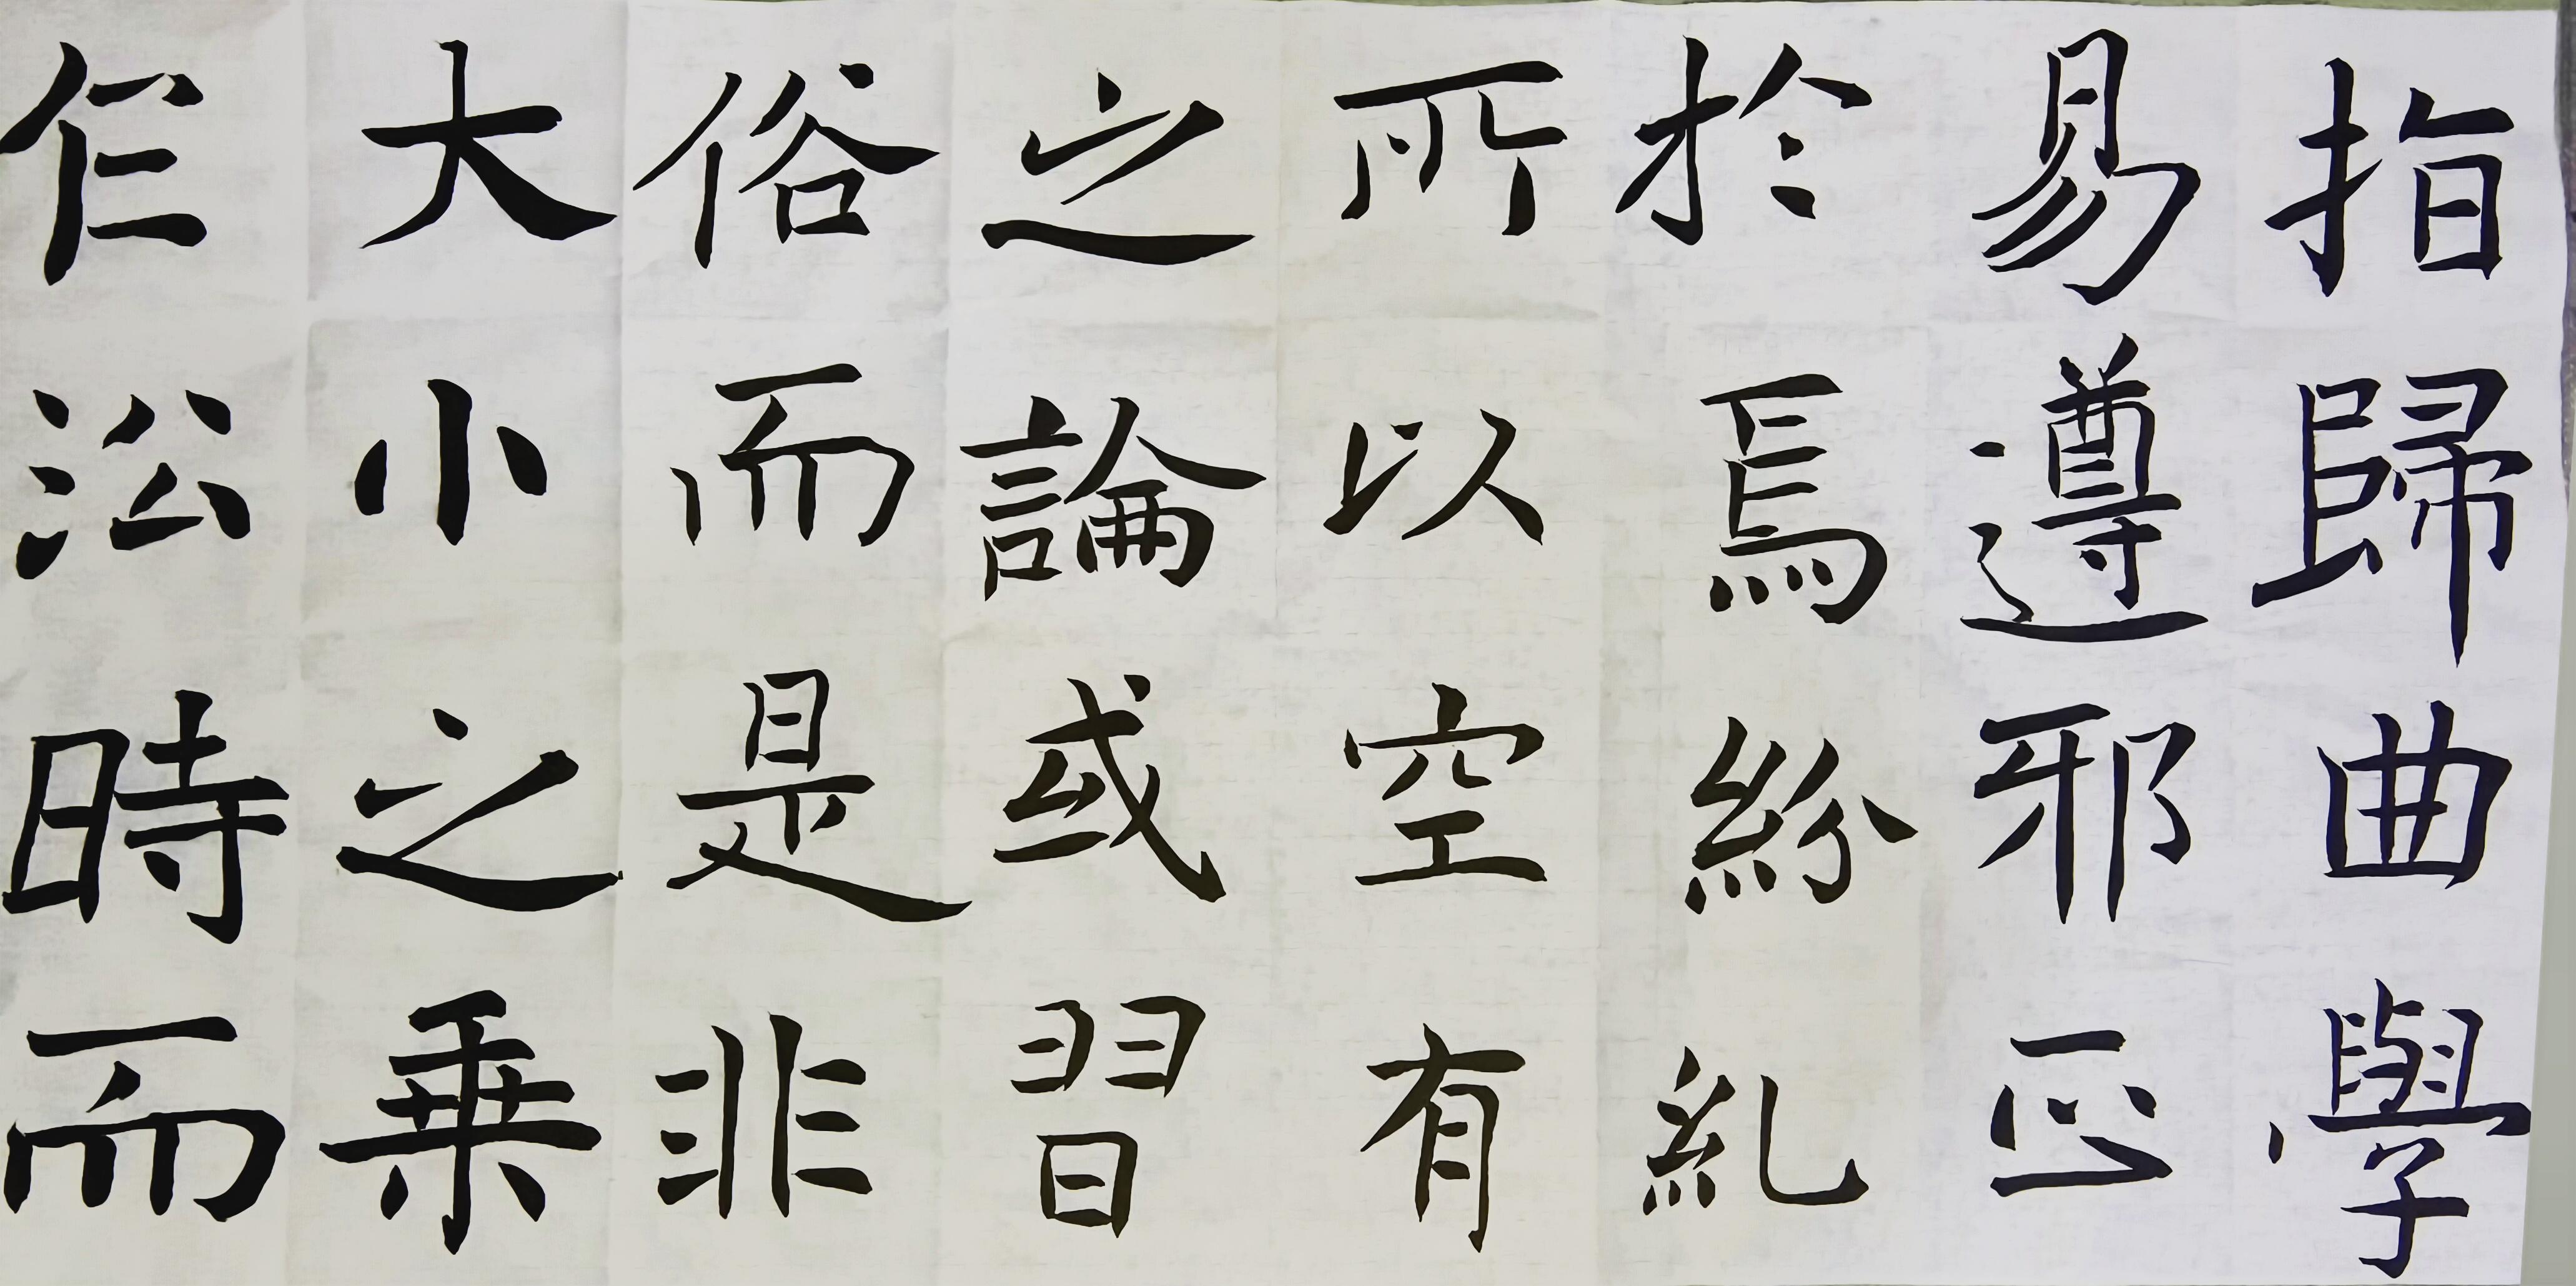 指歸曲學
易遵邪正
於焉紛糺
所以空有
之論或習
俗而是非
大小之乗
乍沿時而